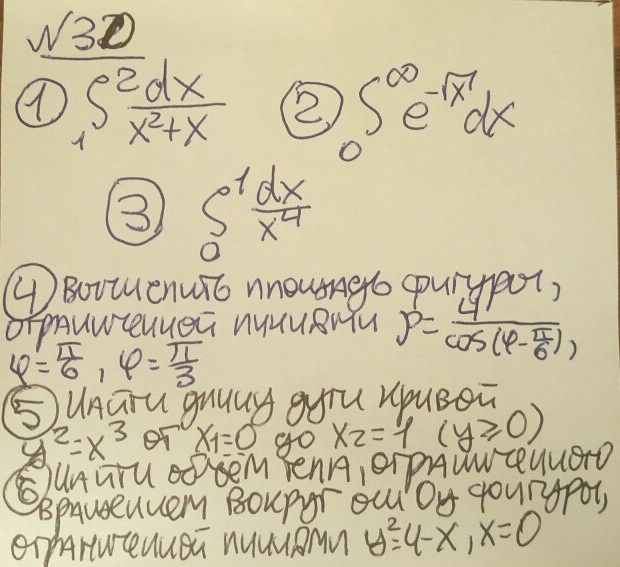 №30
① ∫₁² dx/(x²+x) ② ∫₀^∞ e^(-√x) dx
③ ∫₀¹ dx/x⁴
④ Вычислить площадь фигуры,
ограниченной линиями ρ = 4/cos(φ-π/6),
φ = π/6, φ = π/3
⑤ Найти длину дуги кривой
y² = x³ от x₁=0 до x₂=1 (y≥0)
⑥ Найти объём тела, ограниченного
вращением вокруг оси Oy фигуры,
ограниченной линиями y²=4-x, x=0